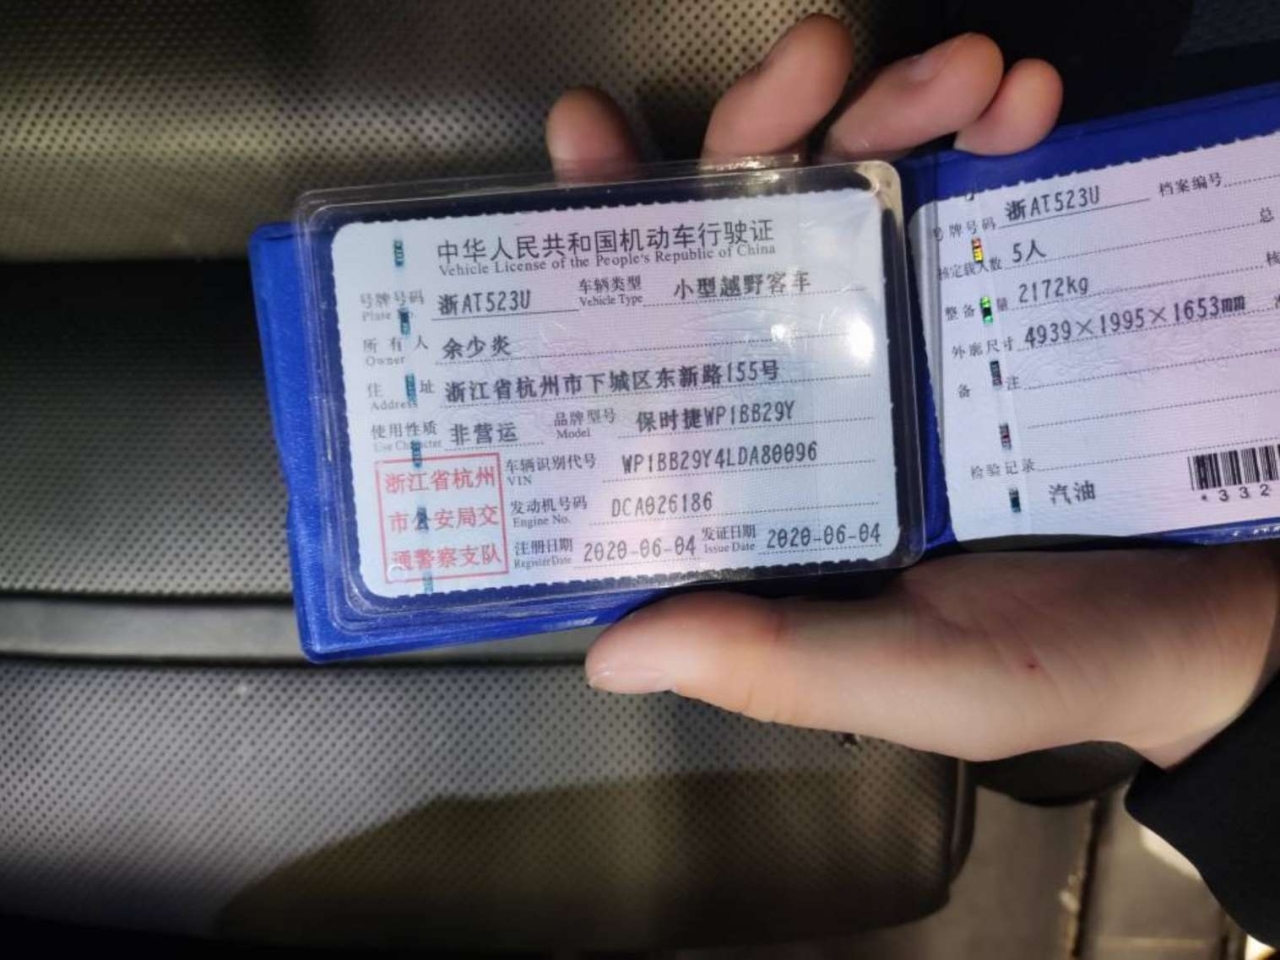 中华人民共和国机动车行驶证
Vehicle License of the People's Republic of China
号牌号码 浙AT523U 车辆类型 小型越野客车
Plate No. Vehicle Type
所有人 余少炎
Owner
住址 浙江省杭州市下城区东新路155号
Address
使用性质 非营运 品牌型号 保时捷WP1BB29Y
Use Character Model
浙江省杭州
市公安局交
通警察支队
车辆识别代号 WP1BB29Y4LDA80096
VIN
发动机号码 DCA026186
Engine No.
注册日期 2020-06-04 发证日期 2020-06-04
Register Date Issue Date
号牌号码 浙AT523U 档案编号
核定载人数 5人 总
整备 量 2172kg 核
外廓尺寸 4939×1995×1653mm
备注
检验记录
汽油
*332